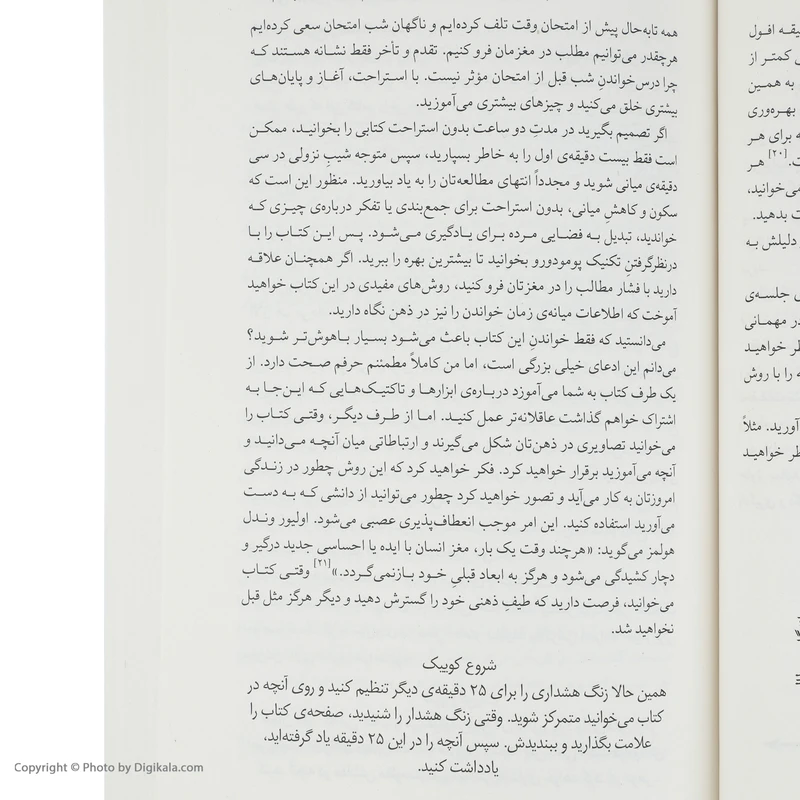 همه تابه‌حال پیش از امتحان وقت تلف کرده‌ایم و ناگهان شب امتحان سعی کرده‌ایم
هرچقدر می‌توانیم مطلب در مغزمان فرو کنیم. تقدم و تأخر فقط نشانه هستند که
چرا درس‌خواندنِ شب قبل از امتحان مؤثر نیست. با استراحت، آغاز و پایان‌های
بیشتری خلق می‌کنید و چیزهای بیشتری می‌آموزید.
اگر تصمیم بگیرید در مدتِ دو ساعت بدون استراحت کتابی را بخوانید، ممکن
است فقط بیست دقیقه‌ی اول را به خاطر بسپارید، سپس متوجه شیبِ نزولی در سی
دقیقه‌ی میانی شوید و مجدداً انتهای مطالعه‌تان را به یاد بیاورید. منظور این است که
سکون و کاهشِ میانی، بدون استراحت برای جمع‌بندی یا تفکر درباره‌ی چیزی که
خواندید، تبدیل به فضایی مرده برای یادگیری می‌شود. پس این کتاب را با
درنظرگرفتنِ تکنیک پومودورو بخوانید تا بیشترین بهره را ببرید. اگر همچنان علاقه
دارید با فشار مطالب را در مغزتان فرو کنید، روش‌های مفیدی در این کتاب خواهید
آموخت که اطلاعات میانه‌ی زمان خواندن را نیز در ذهن نگاه دارید.
می‌دانستید که فقط خواندن این کتاب باعث می‌شود بسیار باهوش‌تر شوید؟
می‌دانم این ادعای خیلی بزرگی است، اما من کاملاً مطمئنم حرفم صحت دارد. از
یک طرف کتاب به شما می‌آموزد درباره‌ی ابزارها و تاکتیک‌هایی که این‌جا به
اشتراک خواهم گذاشت عاقلانه‌تر عمل کنید. اما از طرف دیگر، وقتی کتاب را
می‌خوانید تصاویری در ذهن‌تان شکل می‌گیرند و ارتباطاتی میان آنچه می‌دانید و
آنچه می‌آموزید برقرار خواهید کرد. فکر خواهید کرد که این روش چطور در زندگی
امروزتان به کار می‌آید و تصور خواهید کرد چطور می‌توانید از دانشی که به دست
می‌آورید استفاده کنید. این امر موجب انعطاف‌پذیری عصبی می‌شود. اولیور وندل
هولمز می‌گوید: «هرچند وقت یک بار، مغز انسان با ایده یا احساسی جدید درگیر و
دچار کشیدگی می‌شود و هرگز به ابعاد قبلیِ خود بازنمی‌گردد.»[۲۱] وقتی کتاب
می‌خوانید، فرصت دارید که طیفِ ذهنی خود را گسترش دهید و دیگر هرگز مثل قبل
نخواهید شد.
شروع کوییک
همین حالا زنگ هشداری را برای ۲۵ دقیقه‌ی دیگر تنظیم کنید و روی آنچه در
کتاب می‌خوانید متمرکز شوید. وقتی زنگ هشدار را شنیدید، صفحه‌ی کتاب را
علامت بگذارید و ببندیدش. سپس آنچه را در این ۲۵ دقیقه یاد گرفته‌اید،
یادداشت کنید.
Copyright © Photo by Digikala.com